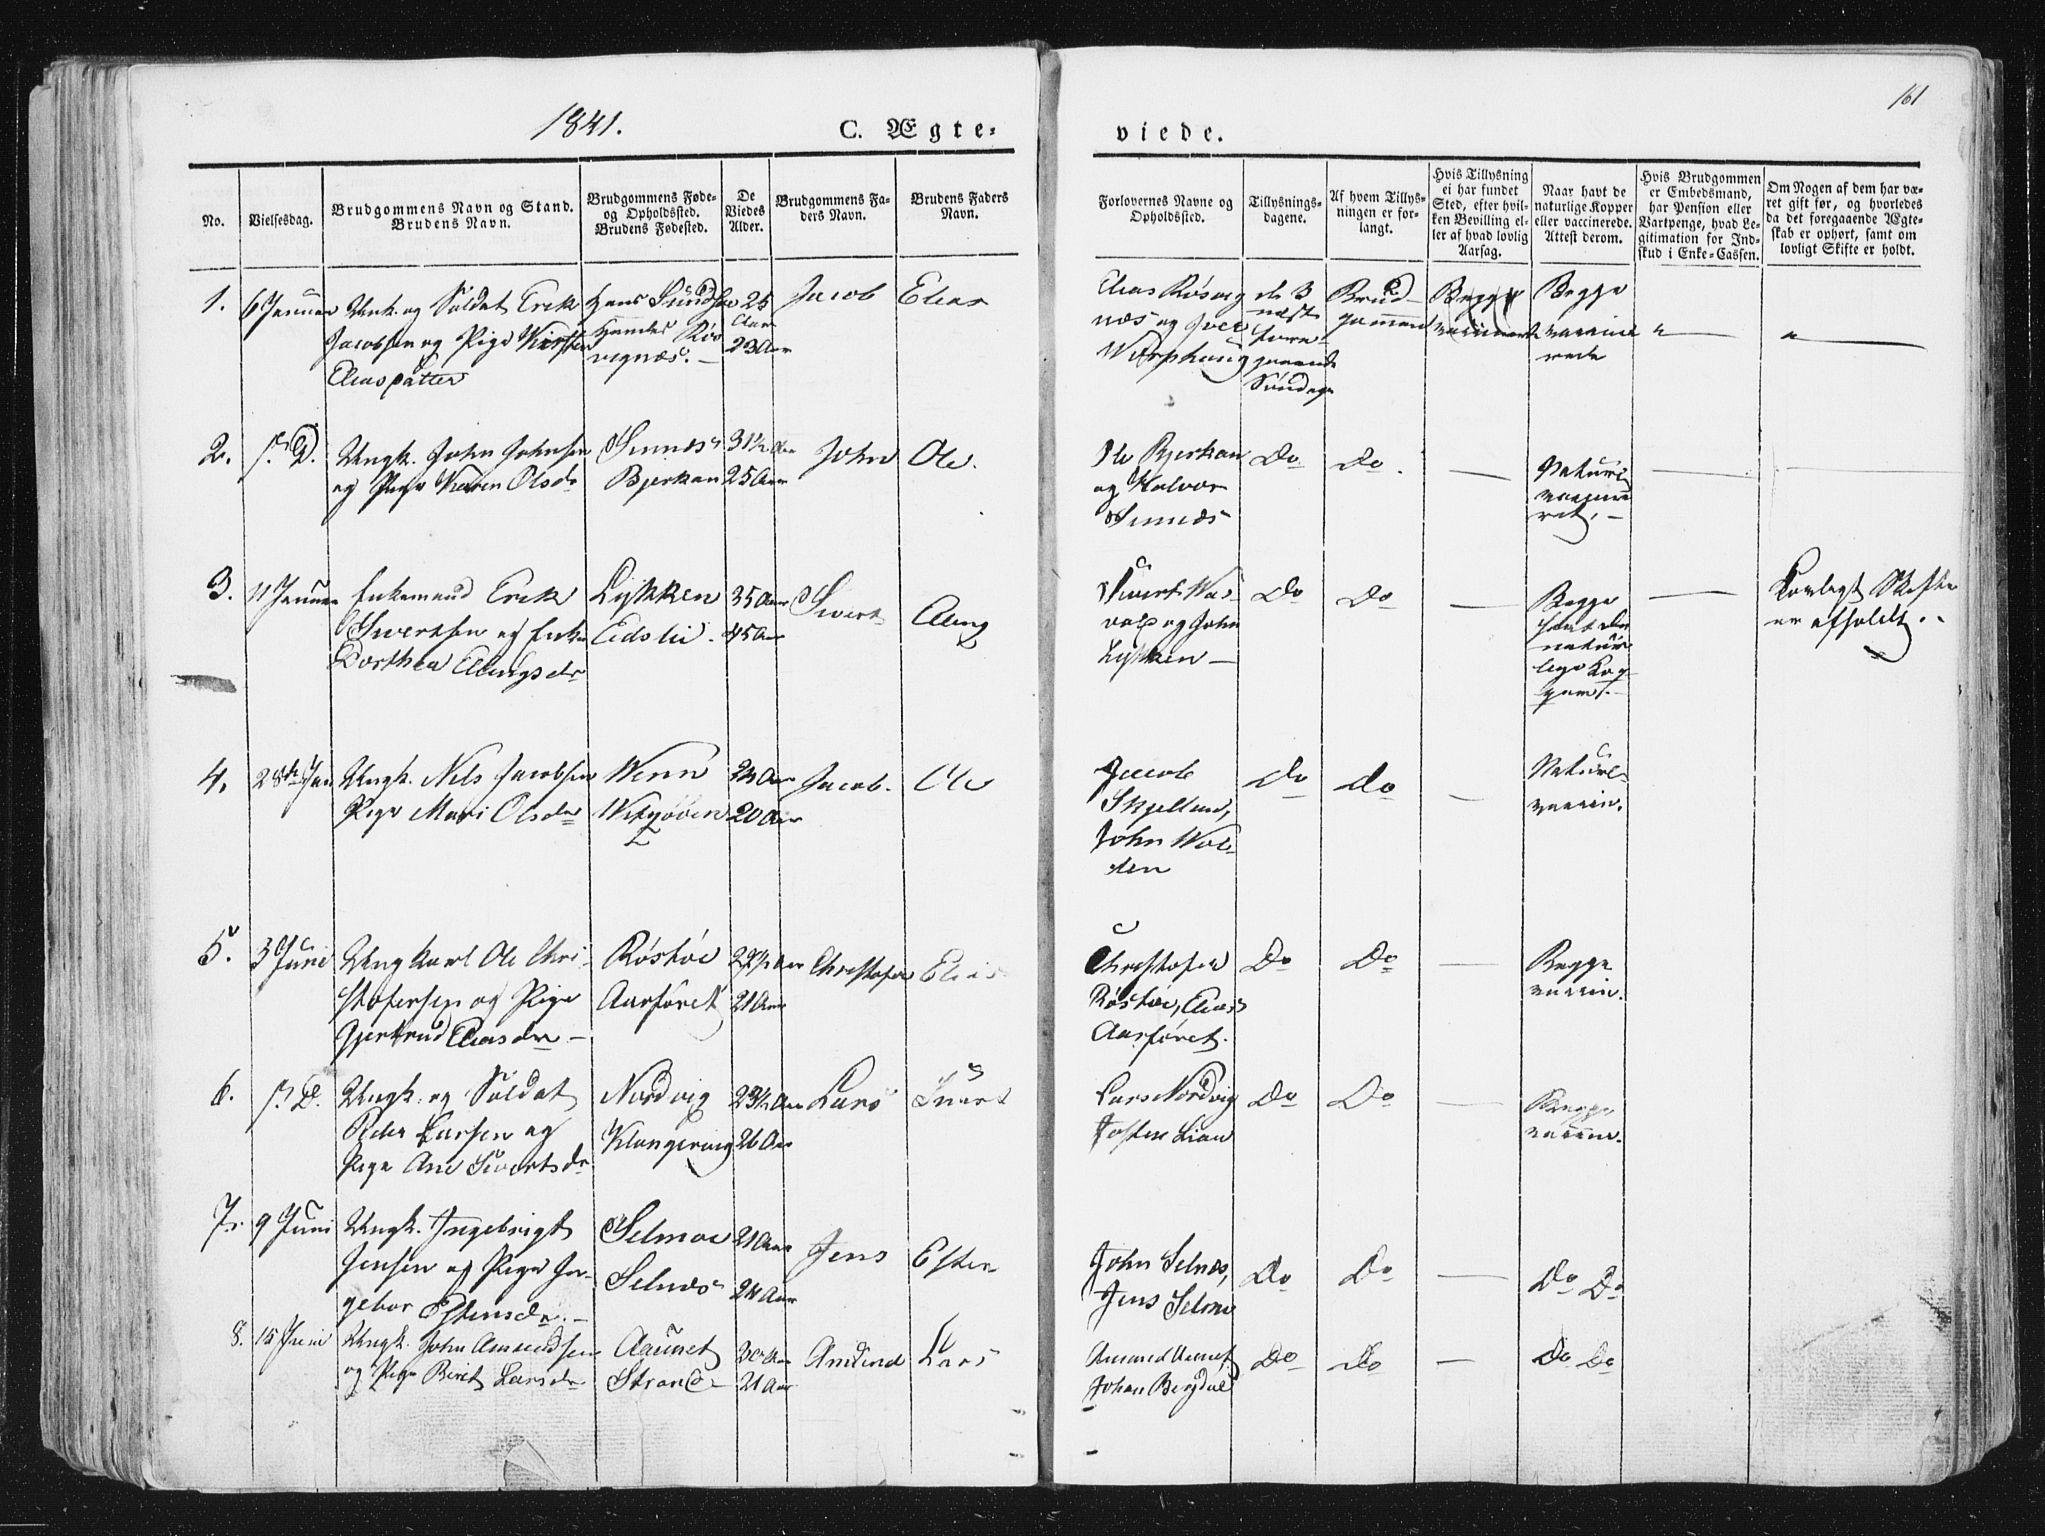 1841.
C. Ægte-
viede.
161
No.
Vielsesdag.
Brudgommens Navn og Stand.
Brudens Navn.
Brudgommens Føde-
og Opholdssted.
Brudens Fødested.
De
Viedes
Alder.
Brudgommens Fa-
ders Navn.
Brudens Faders
Navn.
Forlovernes Navne og
Opholdssted.
Tillysnings-
dagene.
Af hvem Tillys-
ningen er for-
langt.
Hvis Tillysning
ei har fundet
Sted, efter hvil-
ken Bevilling el-
ler af hvad lovlig
Aarsag.
Naar havt de
naturlige Kopper
eller vaccinerede.
Attest derom.
Hvis Brudgommen
er Embedsmand,
har Pension eller
Vartpenge, hvad Le-
gitimation for Ind-
skud i Enke-Cassen.
Om Nogen af dem har væ-
ret gift før, og hvorledes
da det foregaaende Ægte-
skab er ophørt, samt om
lovligt Skifte er holdt.
1.
6 Januar
Unk. og Soldat Erik
Jacobsen og Pige Kirsten
Eliasdatter
25
Aar
23 Aar
Jacob
Elias
Elias Røsvig
næs og
de 3
næst
fore-
gaaende
Søndage
Brud-
gommen
Begge
Begge
vaccine
rede
2.
s. D.
Ungk. John Johnsen
og Pige Karen Olsdr
Sumæs
Bjerkan
31½ Aar
25 Aar
John
Ole.
Ole Bjerkan
og Halvor
Do
Do.
Naturl
vaccine
ret.
3.
11 Januar
Enkemand Erik
Sivertsen og Enke
Dorthea Ellingsdr
Lykken
Eidsli.
35 Aar
45 Aar
Sivert
Elling
Sivert
og John
Lykken
Do
Do
Begge
havt de
natur
lige Kop
per.
Lovligt Skifte
er afholdt.
4.
28de Jan
Ungk. Nils Jacobsen
Pige Mari Olsdr
Wenn
24 Aar
20 Aar
Jacob.
Ole
Jacob
Skjelland,
John Wol-
den
Do
Do
Naturl-
vaccin.
5.
3 Juni
Ungkarl Ole Chri-
stofersen og Pige
Gjertrud Eliasdr
Røstøe
Aarføret
22½ Aar
21 Aar
Christofer
Elias
Christofer
Røstøe, Elias
Aarføret.
Do
Do
Begge
vaccin.
6.
s. D.
Ungk. og Soldat
Peder Larsen og
Pige Ane Sivertsdr
Nordvig
23½ Aar
26 Aar
Lars
Sivert
Lars Nordvig
Josten Lian
Do
Do
Begge
vaccin.
7.
9 Juni
Ungk. Ingebrigt
Jensen og Pige In-
gebor Estensdr.
Selmoe
Selnæs
21 Aar
24 Aar
Jens
Esten
John Selnæs,
Jens Selmoe
Do
Do
Do Do
8.
15 Juni
Ungk. John Amundsen
og Pige Berit Larsdr
Aaunet
Strand
30 Aar
21 Aar
Amund
Lars
Amund Aunet
Johan Bergdal
Do
Do
Do Do